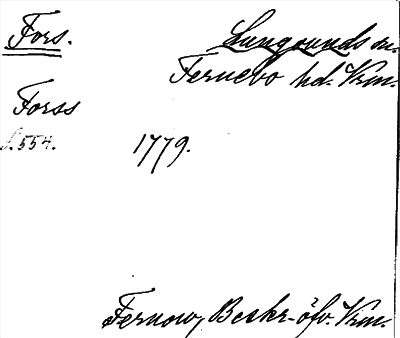 Fors.
Lungsunds sn.
Fernebo hd. Vrm.
Forss
s. 554.
1779.
Fernow, Beskr. öfv. Vrm.